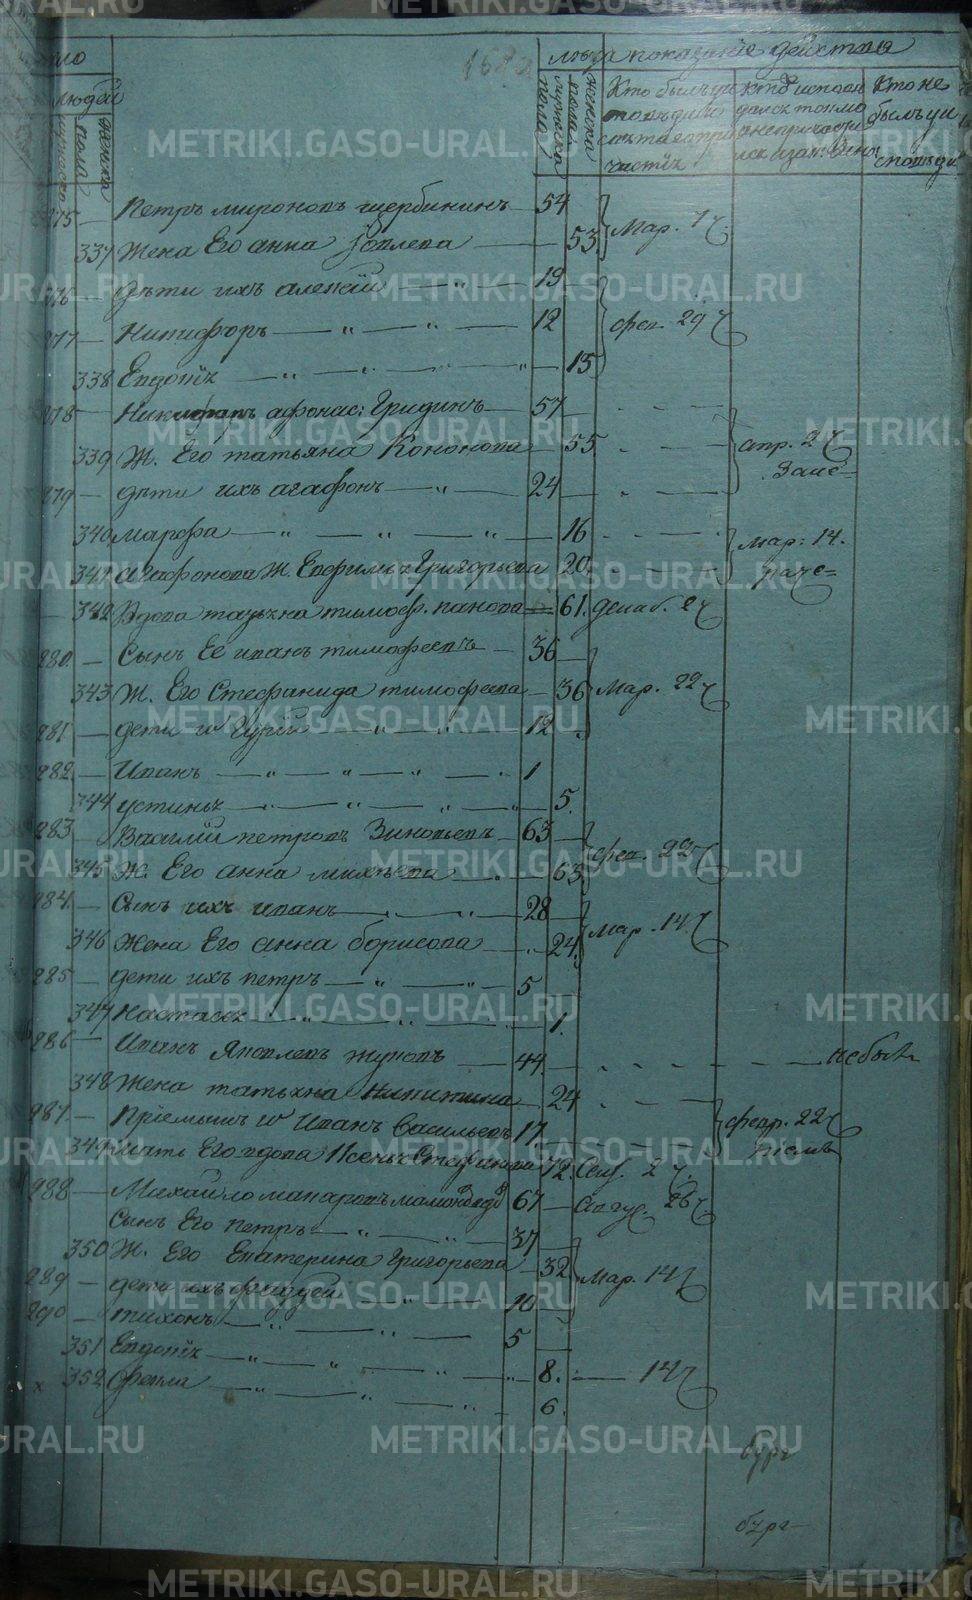 METRIKI.GASO-URAL.RU
людей
мужеска
пола
женска
лѣта
мужеска
пола
женска
показанїе дѣйства
Кто былъ у исповѣди и св. таинъ причастїя
кто исповѣдался токмо а не причастился и за какой виной
Кто не былъ у исповѣди
275 — Петръ Мироновъ Щербининъ — 54
337 Жена Его Анна — 53. Мар. 7
276 — Дѣти ихъ Алексѣй — 19
277 — Никифоръ — 12 фев. 29
338 Евдокїя — 15
278 — Никифоръ Афонас: Гридинъ — 57
339 Ж. Его Татьяна Кононова — 55 апр. 2
279 — Дѣти ихъ Агафонъ — 24
340 Марфа — 16 мар: 14.
341 Агафонова Ж. Евфимья Григорьева 20
342 Вдова Татьяна Тимоф. Панова 61. декаб. 2
280 — Сынъ Ее Иванъ Тимофеевъ — 36
343 Ж. Его Стефанида Тимофеева — 36 Мар. 22
281 — Дети ихъ Гурїй — 12
282 — Иванъ — 1
344 Устинья — 5.
283 Василїй Петровъ Зиновьевъ — 63
345 Ж. Его Анна — 63. фев. 29
284 — Сынъ ихъ Иванъ — 28
346 Жена Его Анна Борисова — 24. Мар. 14
285 — Дети ихъ Петръ — 5
347 Настасья — 1.
286 — Иванъ Яковлевъ Жуковъ — 44 — небылъ
348 Жена Татьяна Никитина — 24
287 — Прїемышъ Иванъ Васильевъ 17 февр. 22
349 Мать Его вдова Ксенья Стефанова 72.
288 — Михайло Макаровъ 67 — Авгус. 26
Сынъ Его Петръ — 37
350 Ж. Его Екатерина Григорьева — 32 Мар. 14
289 — Дети ихъ Фаддей — 10
290 — Тихонъ — 5
351 Евдокїя — 8. — 14
352 Фекла — 6.